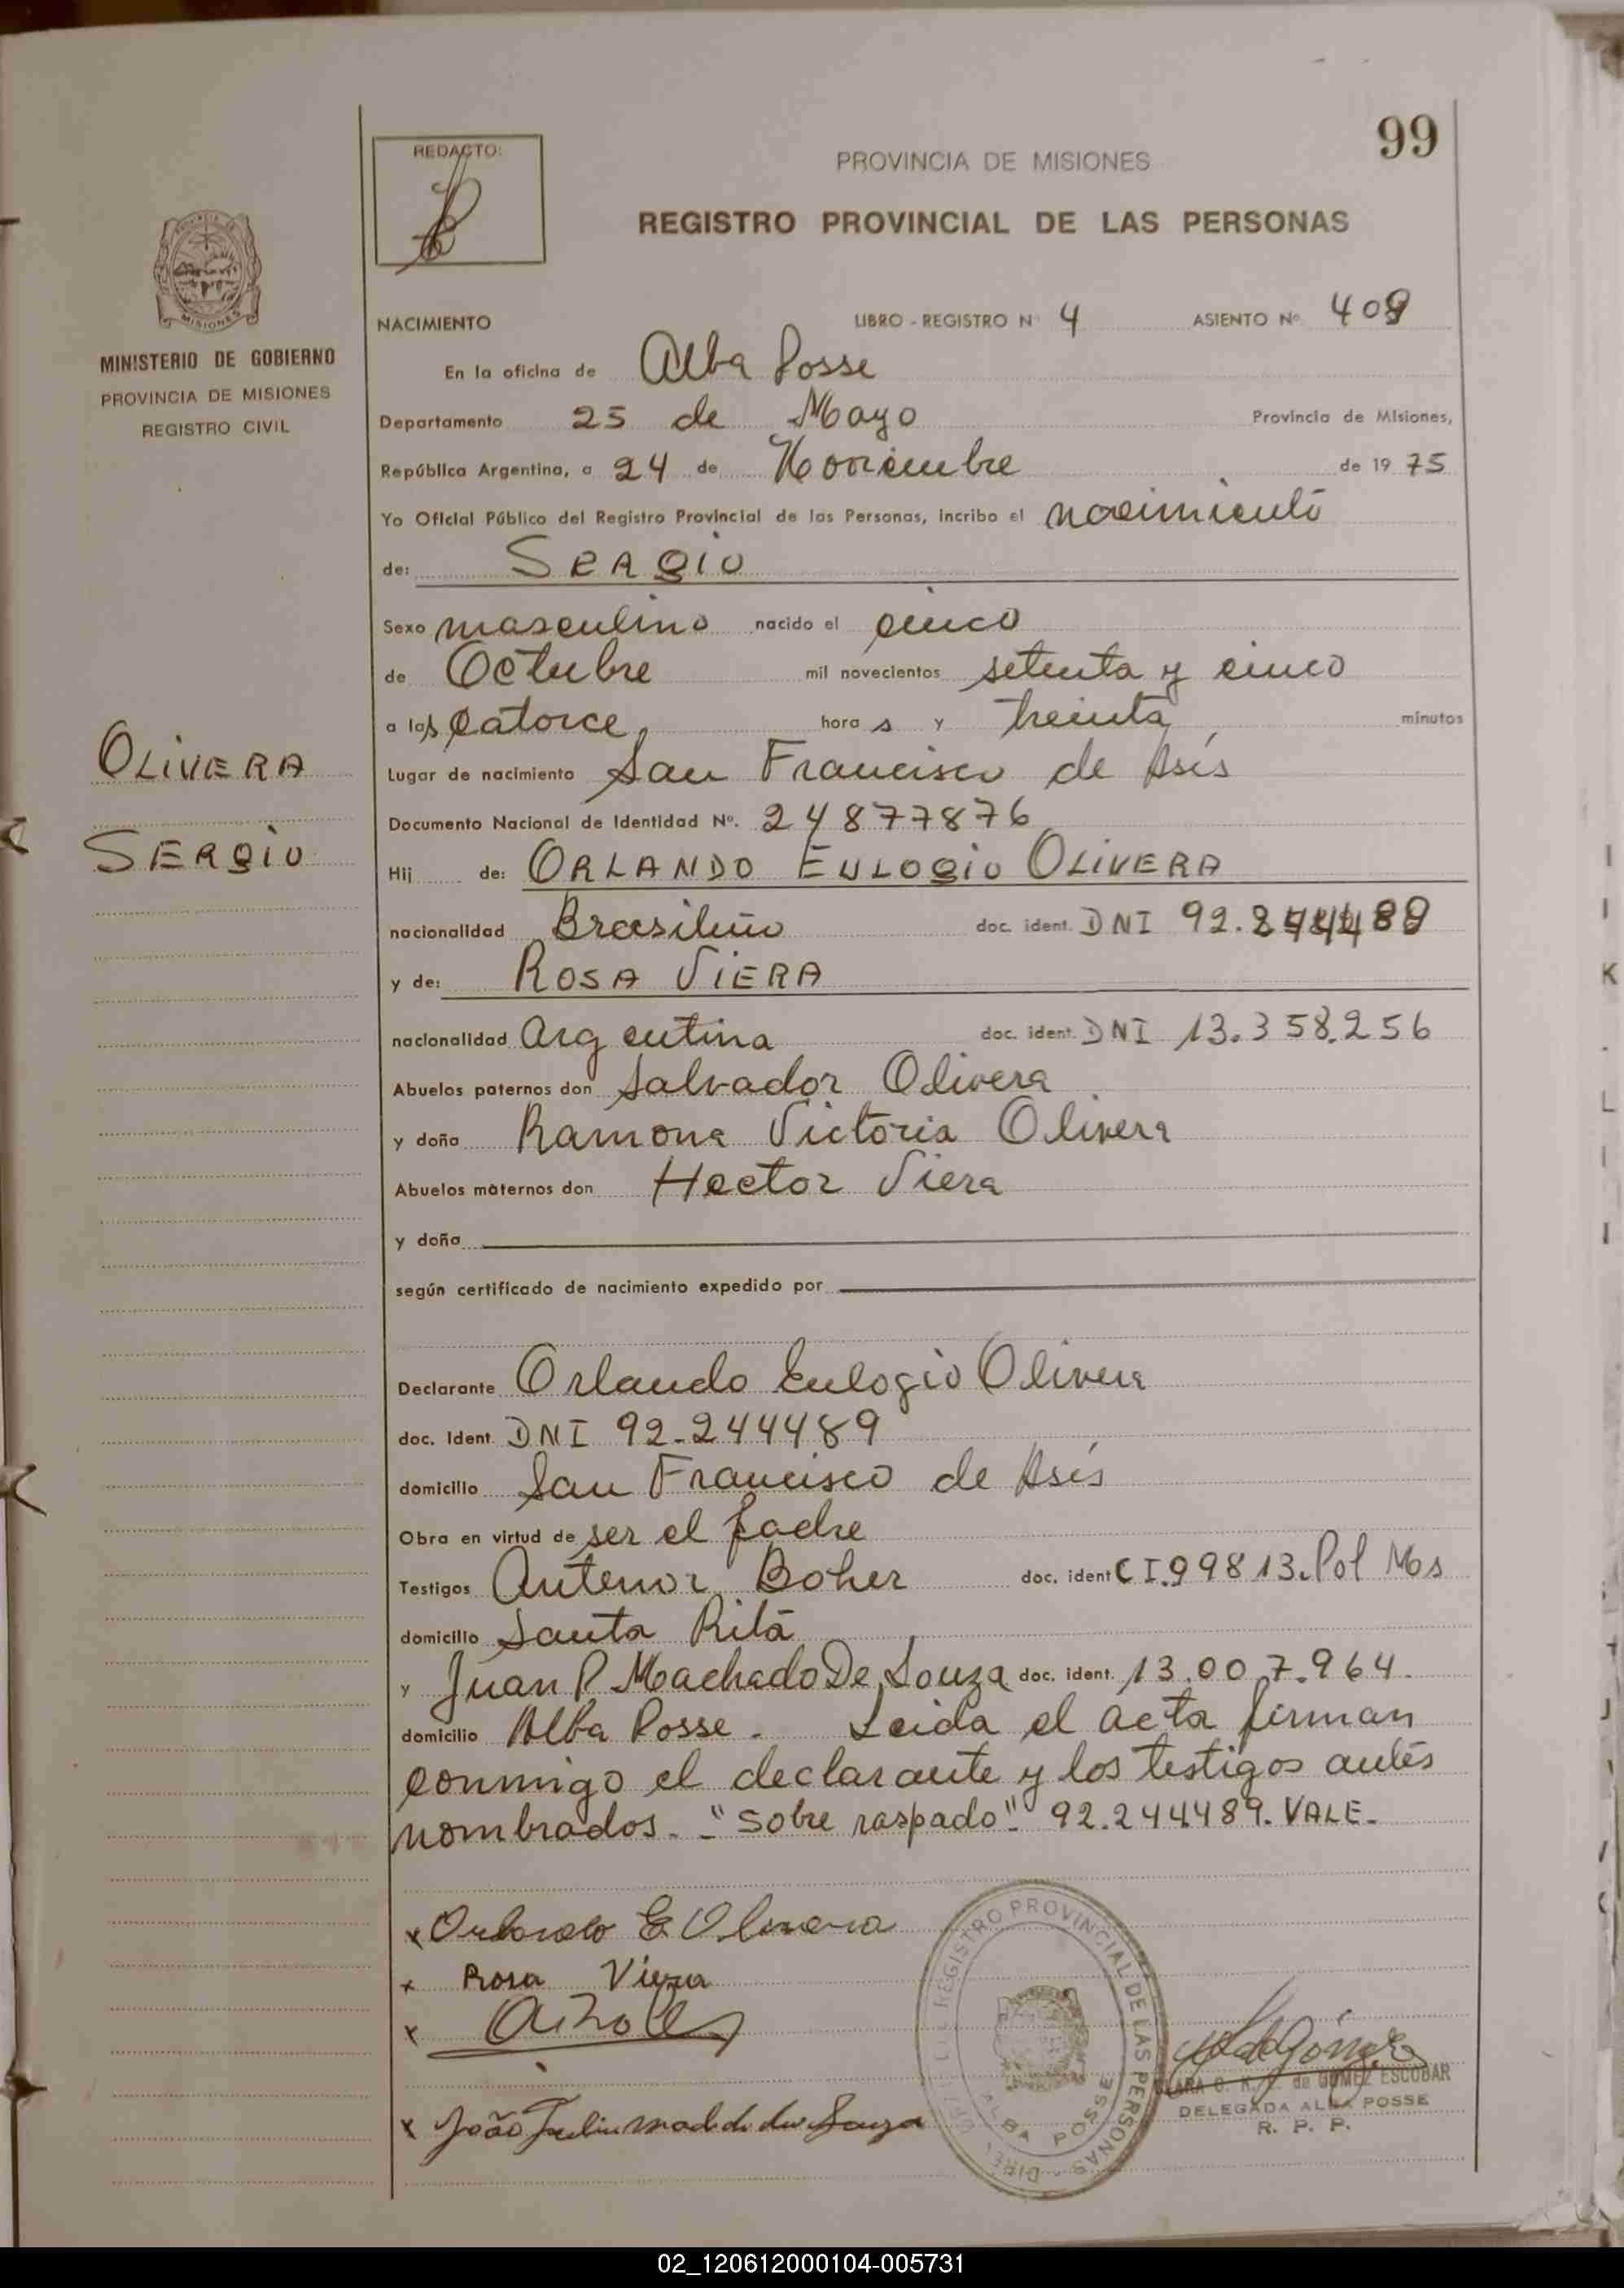 99
REDACTO:
PROVINCIA DE MISIONES
REGISTRO PROVINCIAL DE LAS PERSONAS
MISIONES
MINISTERIO DE GOBIERNO
PROVINCIA DE MISIONES
REGISTRO CIVIL
NACIMIENTO LIBRO - REGISTRO Nº 4 ASIENTO Nº 409
En la oficina de Alba Posse
Departamento 25 de Mayo Provincia de Misiones,
República Argentina, a 24 de Noviembre de 1975
Yo Oficial Público del Registro Provincial de las Personas, incribo el nacimiento
de: SERGIO
Sexo masculino nacido el cinco
de Octubre mil novecientos setenta y cinco
a las catorce hora s y treinta minutos
OLIVERA
Lugar de nacimiento San Francisco de Asís
Documento Nacional de Identidad Nº. 24877876
SERGIO
Hij de: ORLANDO EULOGIO OLIVERA
nacionalidad Brasileño doc. ident. DNI 92.244489
y de: ROSA VIERA
nacionalidad Argentina doc. ident. DNI 13.358.256
Abuelos paternos don Salvador Olivera
y doña Ramona Victoria Olivera
Abuelos maternos don Hector Viera
y doña
según certificado de nacimiento expedido por
Declarante Orlando Eulogio Olivera
doc. Ident. DNI 92.244489
domicilio San Francisco de Asís
Obra en virtud de ser el padre
Testigos Antenor Boher doc. ident CI.99813.Pol Mos
domicilio Santa Rita
y Juan P. Machado De Souza doc. ident. 13.007.964.
domicilio Alba Posse. Leida el acta firman
conmigo el declarante y los testigos antes
nombrados. - "Sobre raspado" 92.244489. VALE.-
x Orlando E Olivera
x Rosa Viera
x
x João
REGISTRO PROVINCIAL DE LAS PERSONAS
ALBA POSSE
de GOMEZ ESCOBAR
DELEGADA ALBA POSSE
R. P. P.
02_120612000104-005731